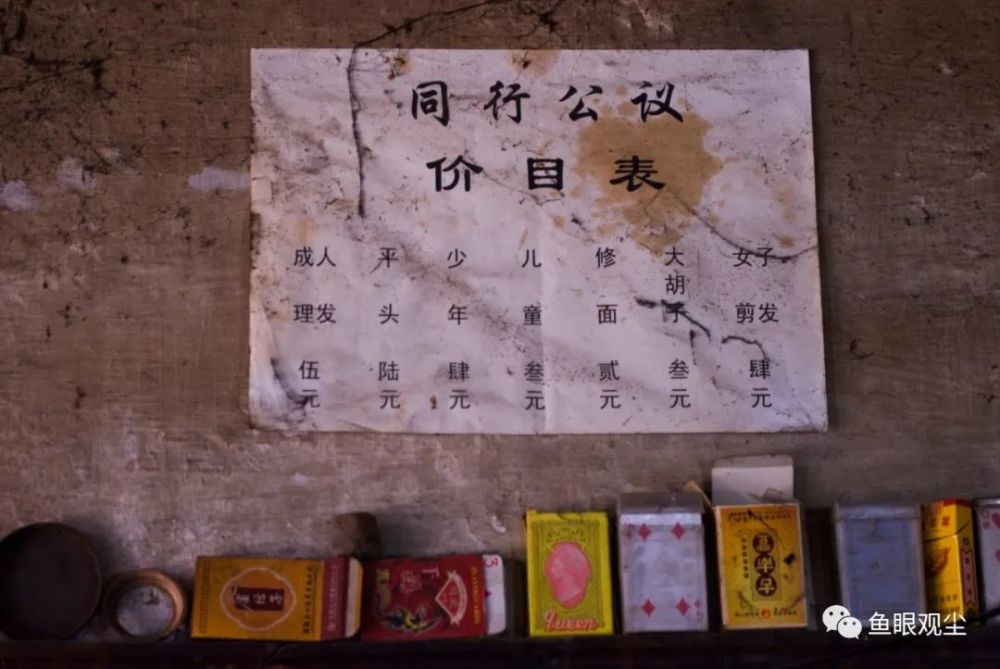 同行公议
价目表
成人理发伍元
平头陆元
少年肆元
儿童叁元
修面贰元
大胡子叁元
女子剪发肆元
鱼眼观尘